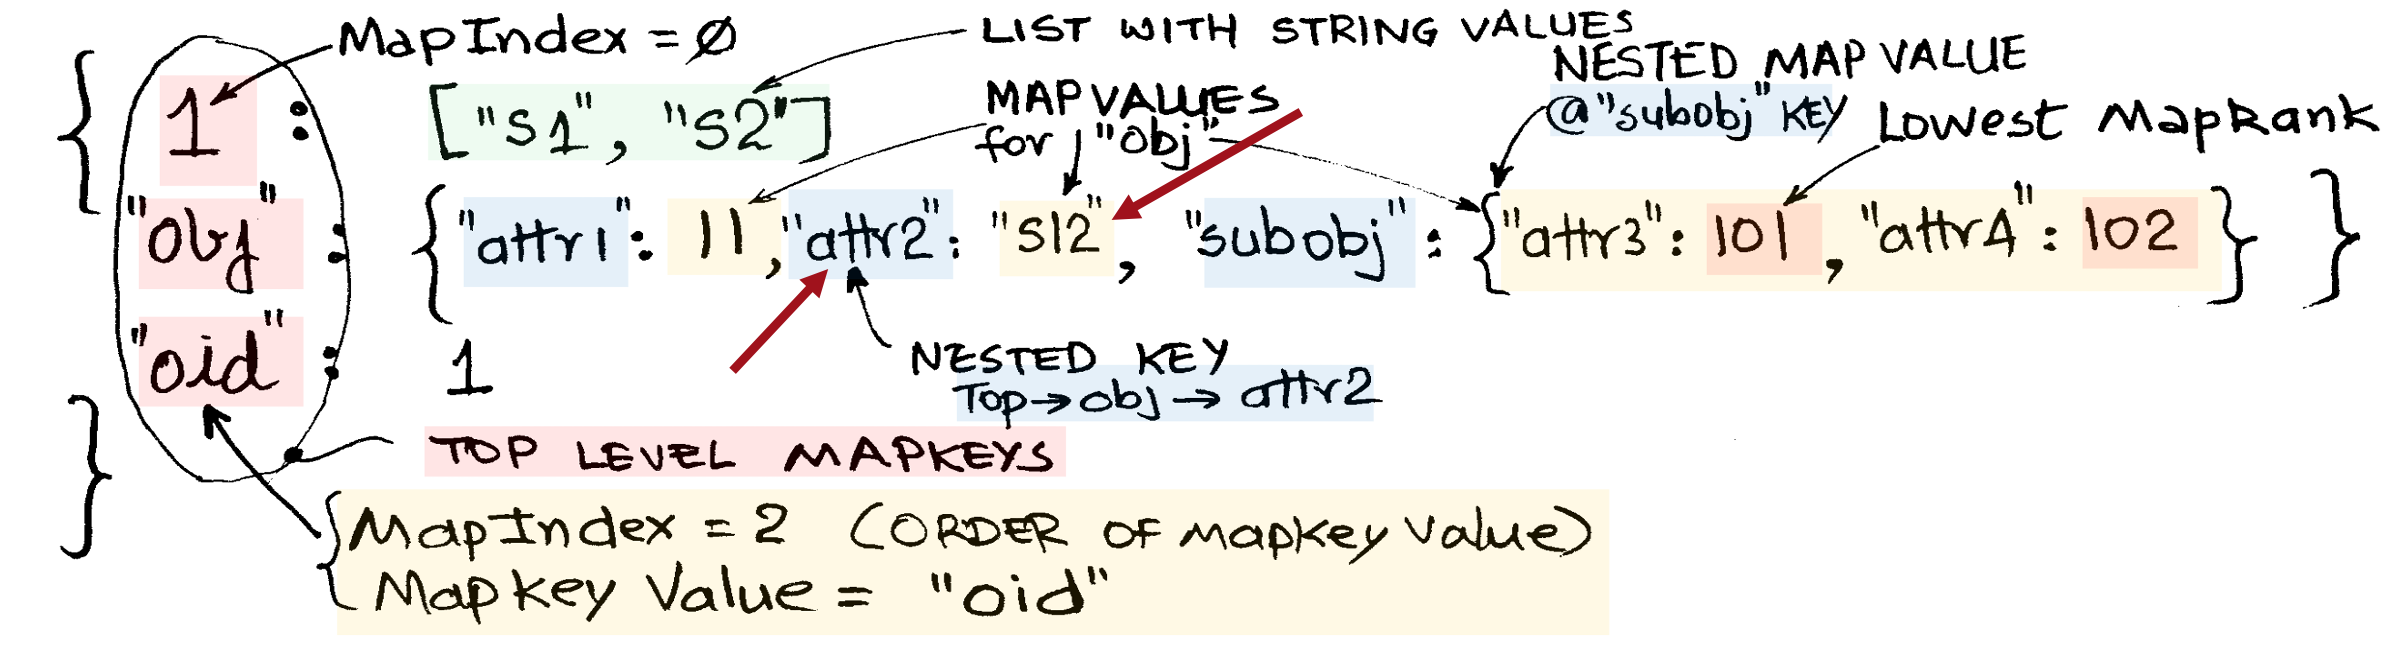 MapIndex = Ø
LIST WITH STRING VALUES
NESTED MAP VALUE
@"subobj" KEY
Lowest MapRank
MAP VALUES
for "obj"
{ 1 : ["S1", "S2"]
"obj" : {"attr1": 11, "attr2": "S12", "subobj": {"attr3": 101, "attr4": 102} }
"oid" : 1
}
NESTED KEY
Top→obj→attr2
TOP LEVEL MAPKEYS
MapIndex = 2 (ORDER OF mapkey value)
Mapkey Value = "oid"